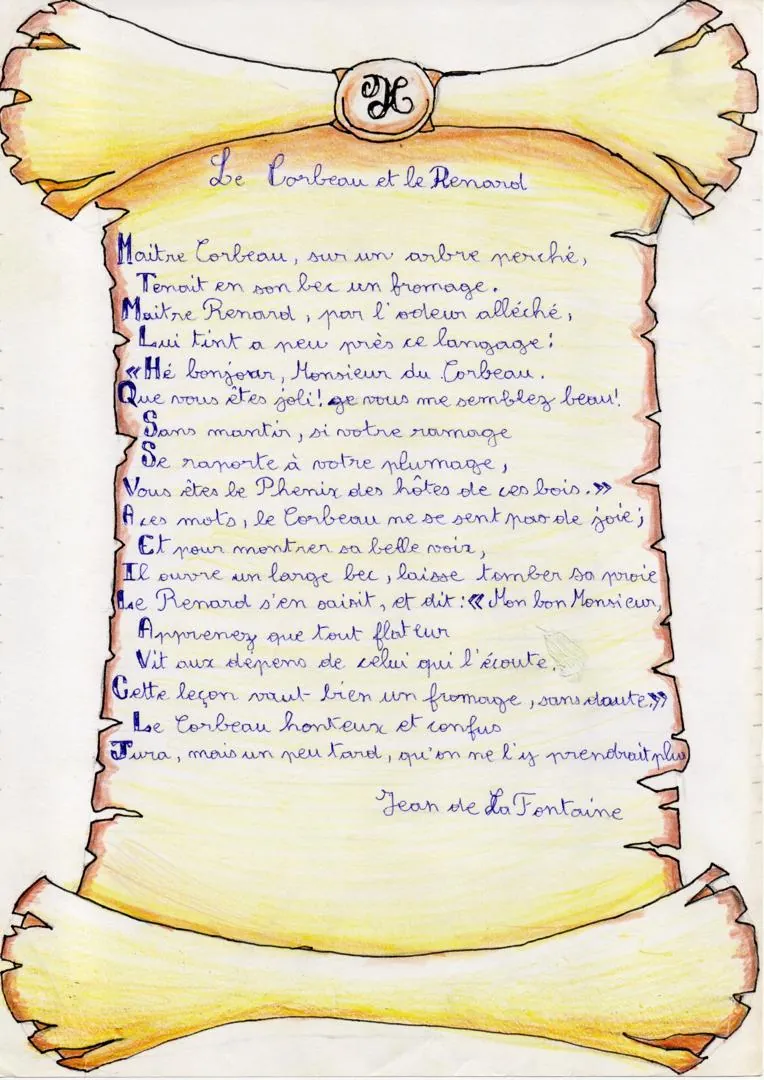 H
Le Corbeau et le Renard
Maitre Corbeau, sur un arbre perché,
Tenait en son bec un fromage.
Maitre Renard, par l'odeur alléché,
Lui tint a peu près ce langage:
«Hé bonjour, Monsieur du Corbeau.
Que vous êtes joli! ge vous me semblez beau!
Sans mantir, si votre ramage
Se raporte à votre plumage,
Vous êtes le Phenix des hôtes de ces bois.»
A ces mots, le Corbeau ne se sent pas de joie;
Et pour montrer sa belle voix,
Il ouvre un large bec, laisse tomber sa proie
Le Renard s'en saisit, et dit: «Mon bon Monsieur,
Apprenez que tout flateur
Vit aux dépens de celui qui l'écoute.
Cette leçon vaut bien un fromage, sans doute.»
Le Corbeau honteux et confus
Jura, mais un peu tard, qu'on ne l'y prendrait plus
Jean de La Fontaine